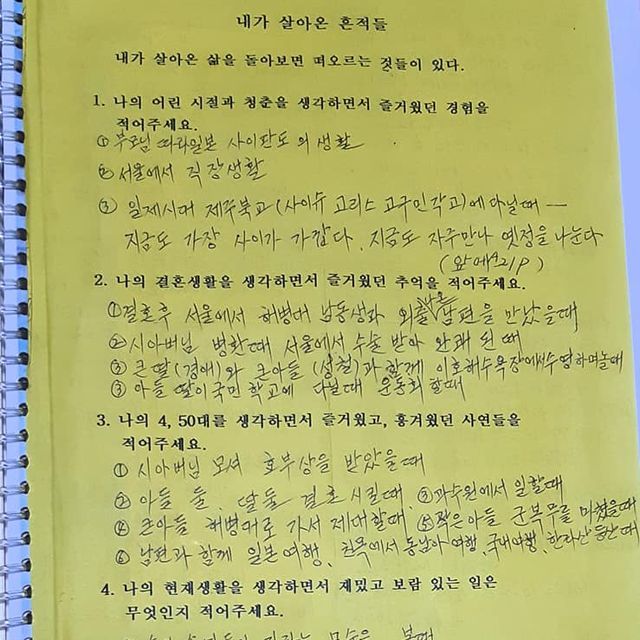 내가 살아온 흔적들
내가 살아온 삶을 돌아보면 떠오르는 것들이 있다.
1. 나의 어린 시절과 청춘을 생각하면서 즐거웠던 경험을
적어주세요.
① 부모님 따라 일본 사이판도의 생활
② 서울에서 직장생활
③ 일제시대 제주북교(사이슈 고리스 고구민각고)에 다닐때 —
지금도 가장 사이가 가깝다. 지금도 자주만나 옛정을 나눈다
2. 나의 결혼생활을 생각하면서 즐거웠던 추억을 적어주세요.
(앞에 21P)
① 결혼후 서울에서 해병대 남동생과 외출 나온 남편을 만났을때
② 시아버님 병환때 서울에서 수술 받아 완쾌 된 때
③ 큰딸(경애)와 큰아들(성철)과 함께 이호해수욕장에서 수영하며 놀때
③ 아들 딸이 국민학교에 다닐때 운동회 할때
3. 나의 4, 50대를 생각하면서 즐거웠고, 흥겨웠던 사연들을
적어주세요.
① 시아버님 모셔 효부상을 받았을때
② 아들 둘, 딸들 결혼 시킬때. ③ 과수원에서 일할때
④ 큰아들 해병대로 가서 제대할때 ⑤ 작은 아들 군복무를 마쳤을때
⑥ 남편과 함께 일본여행, 친목에서 동남아여행, 국내여행, 한라산 등산때
4. 나의 현재생활을 생각하면서 재밌고 보람 있는 일은
무엇인지 적어주세요.